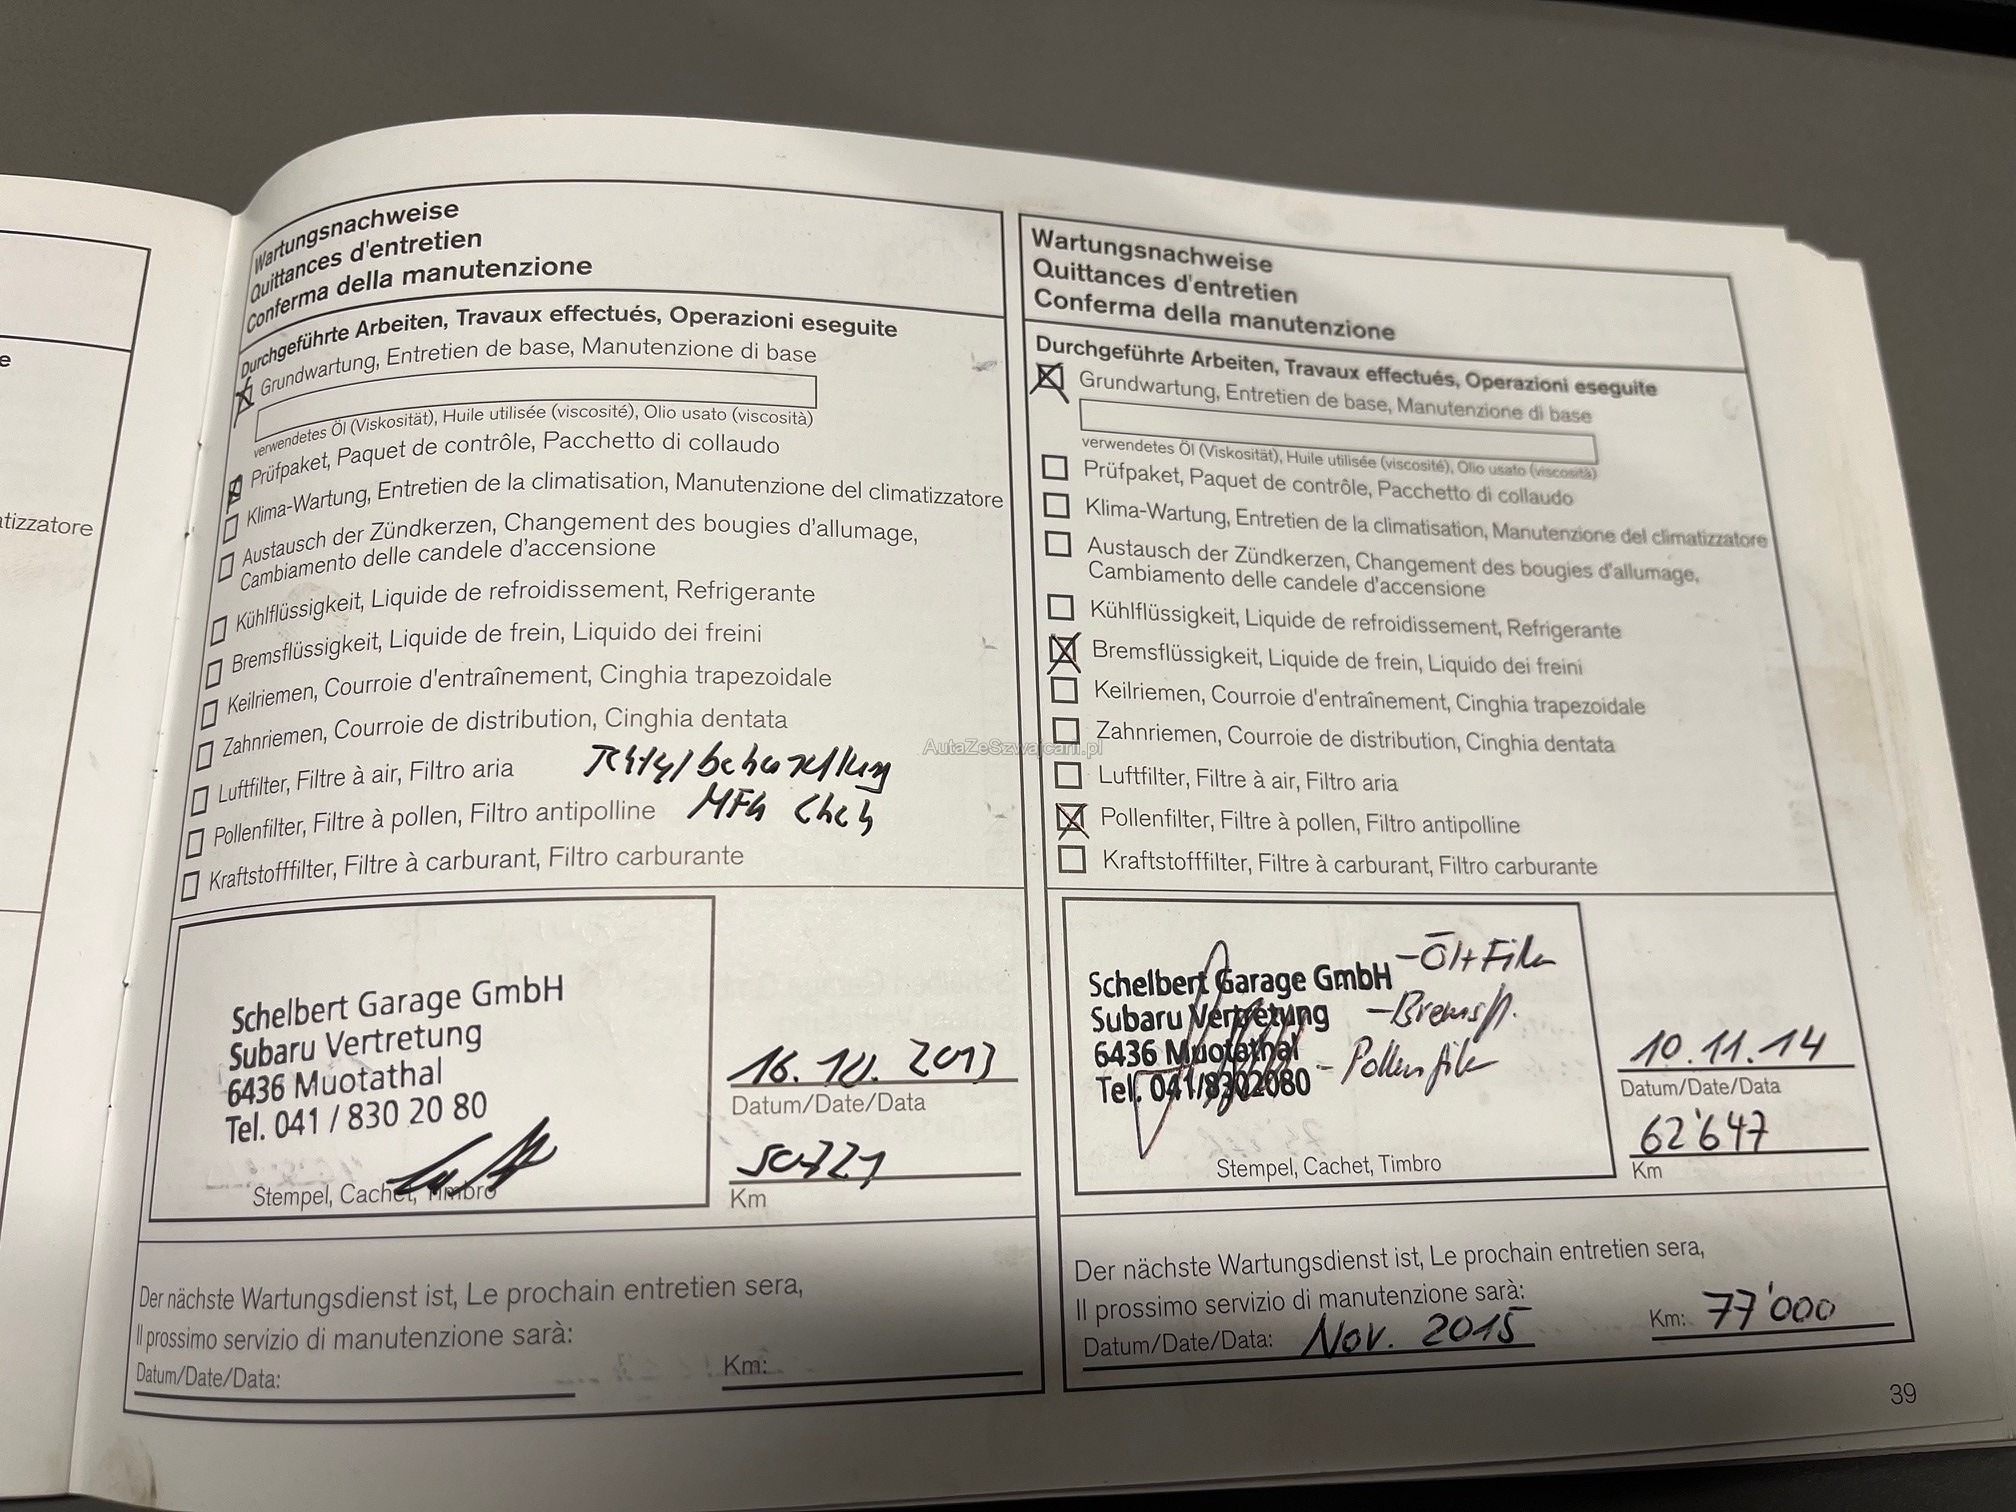 e
tizzatore
Wartungsnachweise
Quittances d'entretien
Conferma della manutenzione
Durchgeführte Arbeiten, Travaux effectués, Operazioni eseguite
Grundwartung, Entretien de base, Manutenzione di base
verwendetes Öl (Viskosität), Huile utilisée (viscosité), Olio usato (viscosità)
Prüfpaket, Paquet de contrôle, Pacchetto di collaudo
Klima-Wartung, Entretien de la climatisation, Manutenzione del climatizzatore
Austausch der Zündkerzen, Changement des bougies d'allumage,
Cambiamento delle candele d'accensione
Kühlflüssigkeit, Liquide de refroidissement, Refrigerante
Bremsflüssigkeit, Liquide de frein, Liquido dei freini
Keilriemen, Courroie d'entraînement, Cinghia trapezoidale
Zahnriemen, Courroie de distribution, Cinghia dentata
Luftfilter, Filtre à air, Filtro aria
Pollenfilter, Filtre à pollen, Filtro antipolline
Kraftstofffilter, Filtre à carburant, Filtro carburante
Schelbert Garage GmbH
Subaru Vertretung
6436 Muotathal
Tel. 041 / 830 20 80
Stempel, Cachet, Timbro
16.10.2013
Datum/Date/Data
50721
Km
Der nächste Wartungsdienst ist, Le prochain entretien sera,
Il prossimo servizio di manutenzione sarà:
Datum/Date/Data: Km:
Wartungsnachweise
Quittances d'entretien
Conferma della manutenzione
Durchgeführte Arbeiten, Travaux effectués, Operazioni eseguite
Grundwartung, Entretien de base, Manutenzione di base
verwendetes Öl (Viskosität), Huile utilisée (viscosité), Olio usato (viscosità)
Prüfpaket, Paquet de contrôle, Pacchetto di collaudo
Klima-Wartung, Entretien de la climatisation, Manutenzione del climatizzatore
Austausch der Zündkerzen, Changement des bougies d'allumage,
Cambiamento delle candele d'accensione
Kühlflüssigkeit, Liquide de refroidissement, Refrigerante
Bremsflüssigkeit, Liquide de frein, Liquido dei freini
Keilriemen, Courroie d'entraînement, Cinghia trapezoidale
Zahnriemen, Courroie de distribution, Cinghia dentata
Luftfilter, Filtre à air, Filtro aria
Pollenfilter, Filtre à pollen, Filtro antipolline
Kraftstofffilter, Filtre à carburant, Filtro carburante
Schelbert Garage GmbH - Öl + Filter
Subaru Vertretung - Bremsfl.
6436 Muotathal
Tel. 041/8302080 - Pollenfilter
Stempel, Cachet, Timbro
10.11.14
Datum/Date/Data
62'647
Km
Der nächste Wartungsdienst ist, Le prochain entretien sera,
Il prossimo servizio di manutenzione sarà:
Datum/Date/Data: Nov. 2015 Km: 77'000
39
AutaZeSzwajcarii.pl